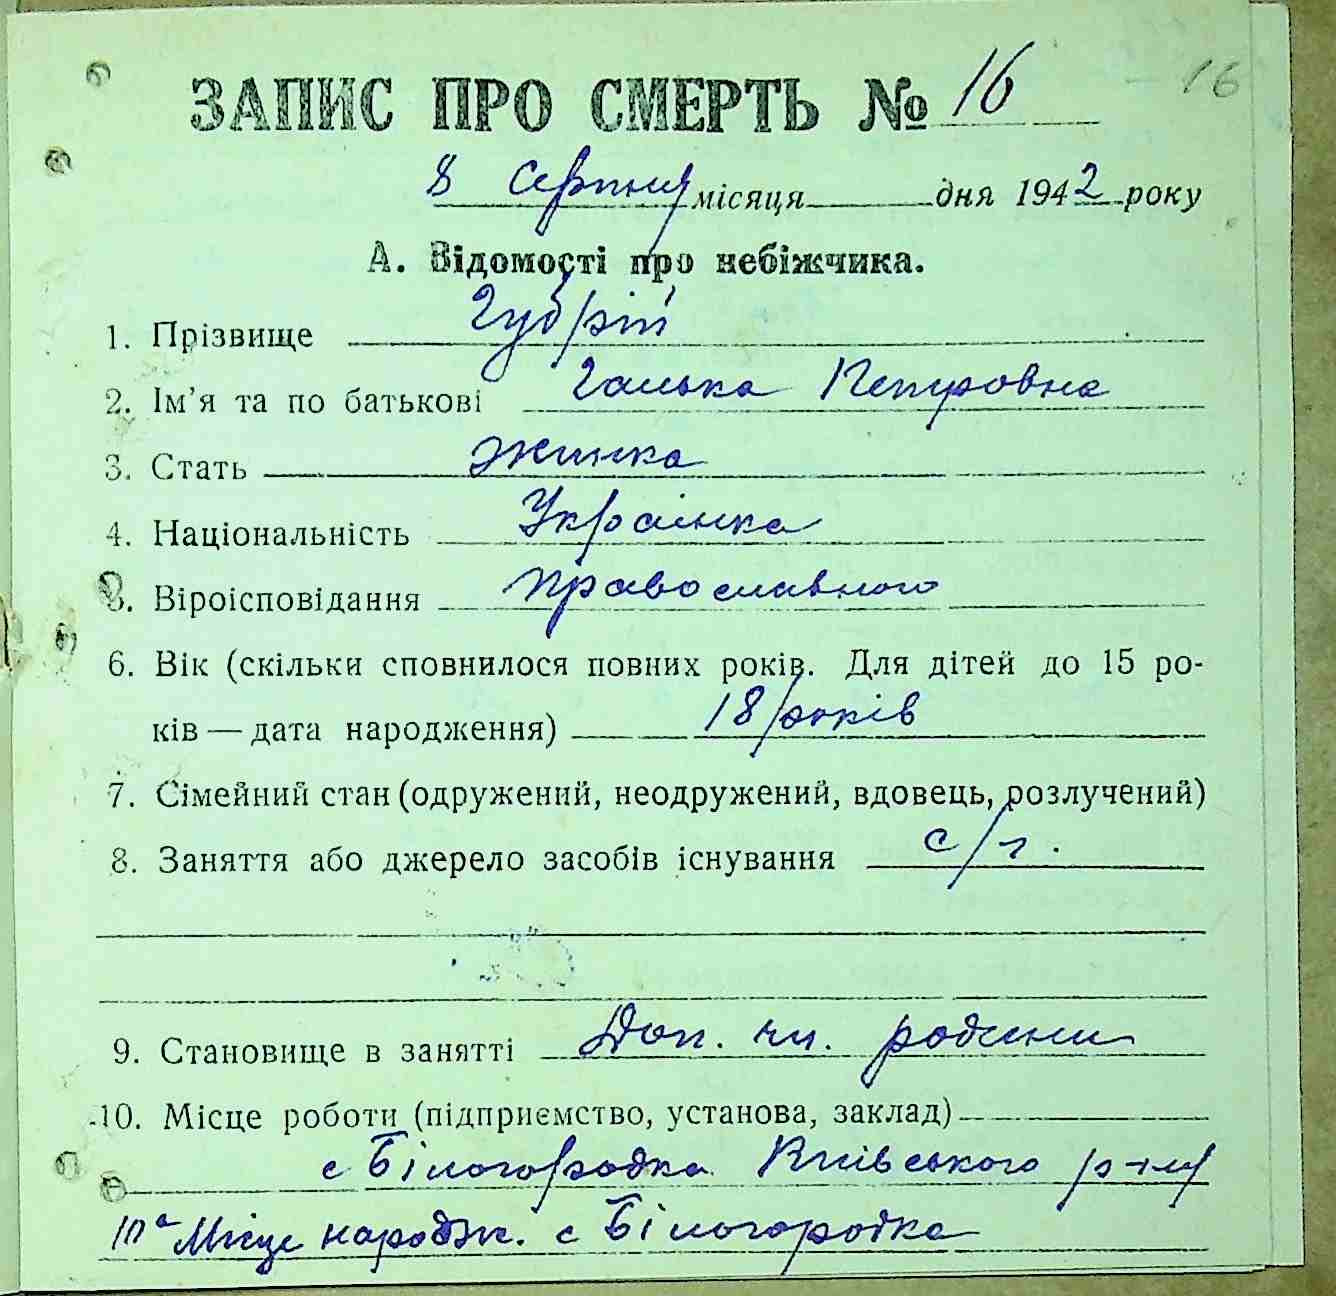 16
ЗАПИС ПРО СМЕРТЬ № 16
8 серпня місяця дня 1942 року
А. Відомості про небіжчика.
1. Прізвище Губрій
2. Ім’я та по батькові Галька Петровна
3. Стать жинка
4. Національність Українка
5. Віроісповідання православного
6. Вік (скільки сповнилося повних років. Для дітей до 15 ро-
ків — дата народження) 18 років
7. Сімейний стан (одружений, неодружений, вдовець, розлучений)
8. Заняття або джерело засобів існування с/г.
9. Становище в занятті Доп. чл. родини
10. Місце роботи (підприємство, установа, заклад)
с Білогородка Київського р-ну
10а Місце народж. с Білогородка